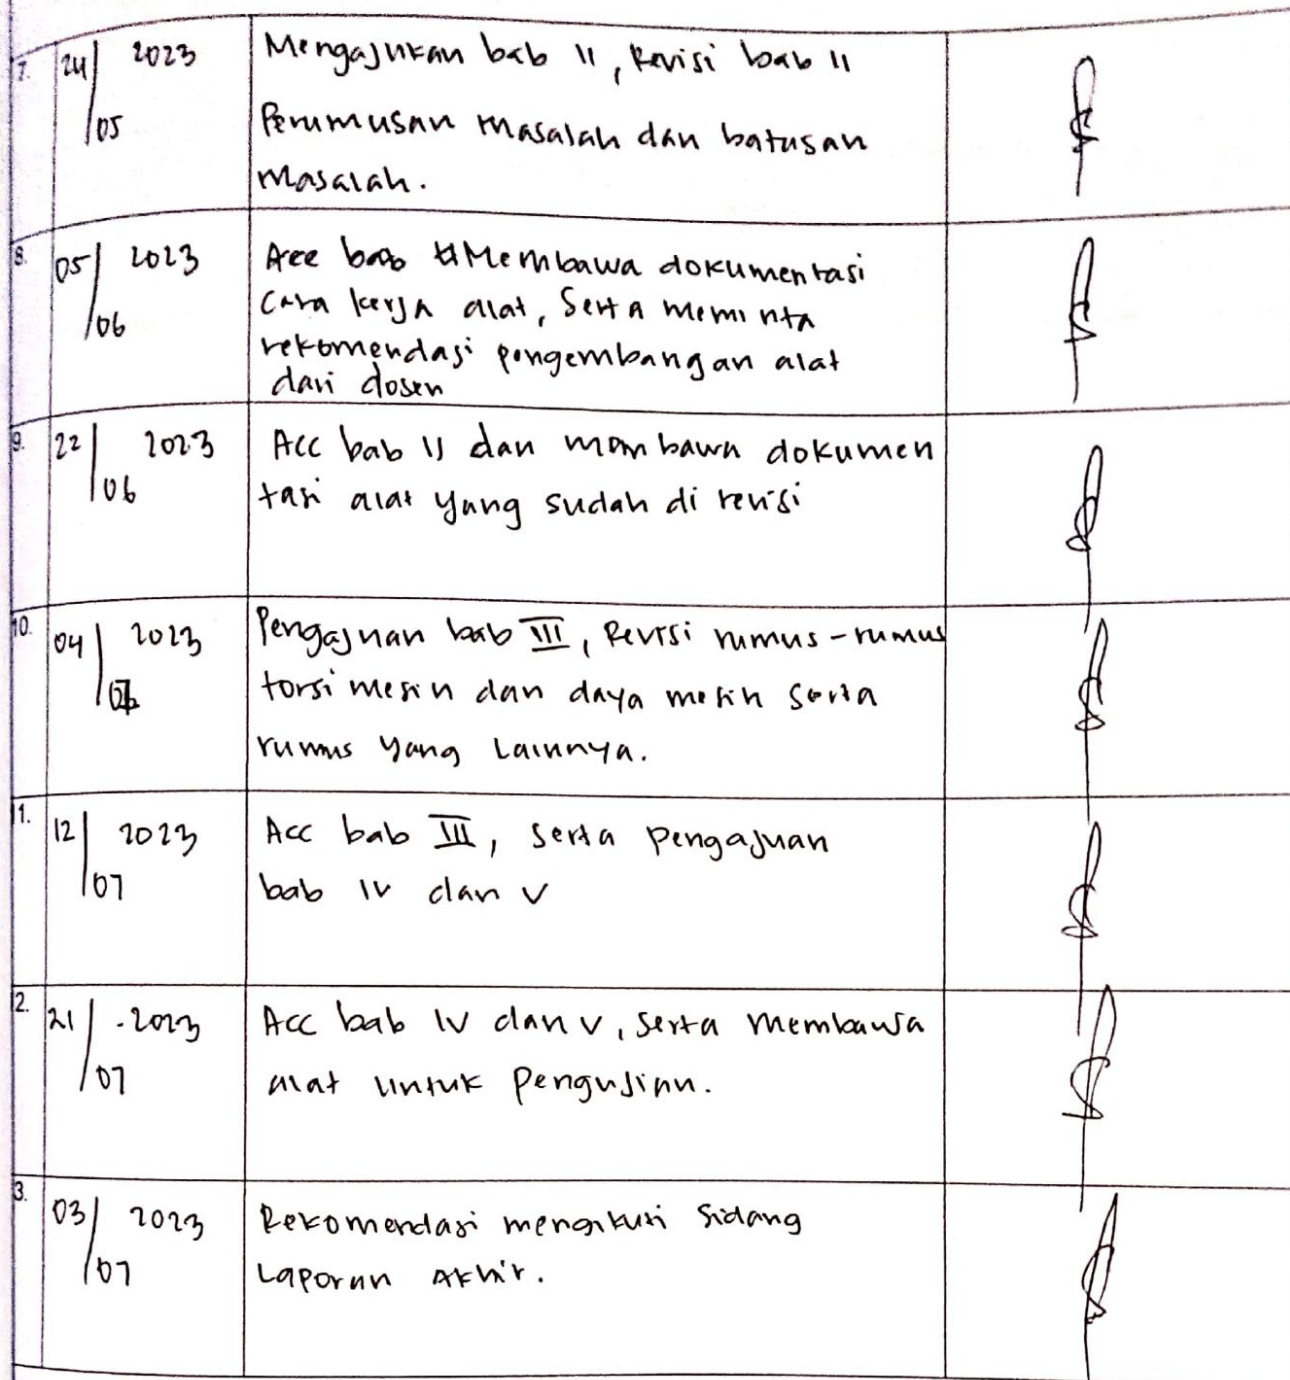 7. 24/05 2023 Mengajukan bab II, Revisi bab II
Perumusan masalah dan batasan
masalah.
8. 05/06 2023 Membawa dokumentasi
Cara kerja alat, Serta meminta
rekomendasi pengembangan alat
dari dosen
9. 22/06 2023 Acc bab II dan membawa dokumen
tasi alat yang sudah di revisi
10. 04/ 2023 Pengajuan bab III, Revisi rumus-rumus
torsi mesin dan daya mesin serta
rumus yang Lainnya.
11. 12/07 2023 Acc bab III, serta pengajuan
bab IV dan V
2. 21/07 2023 Acc bab IV dan V, serta membawa
alat untuk Pengujian.
3. 03/07 2023 Rekomendasi mengikuti Sidang
Laporan Akhir.